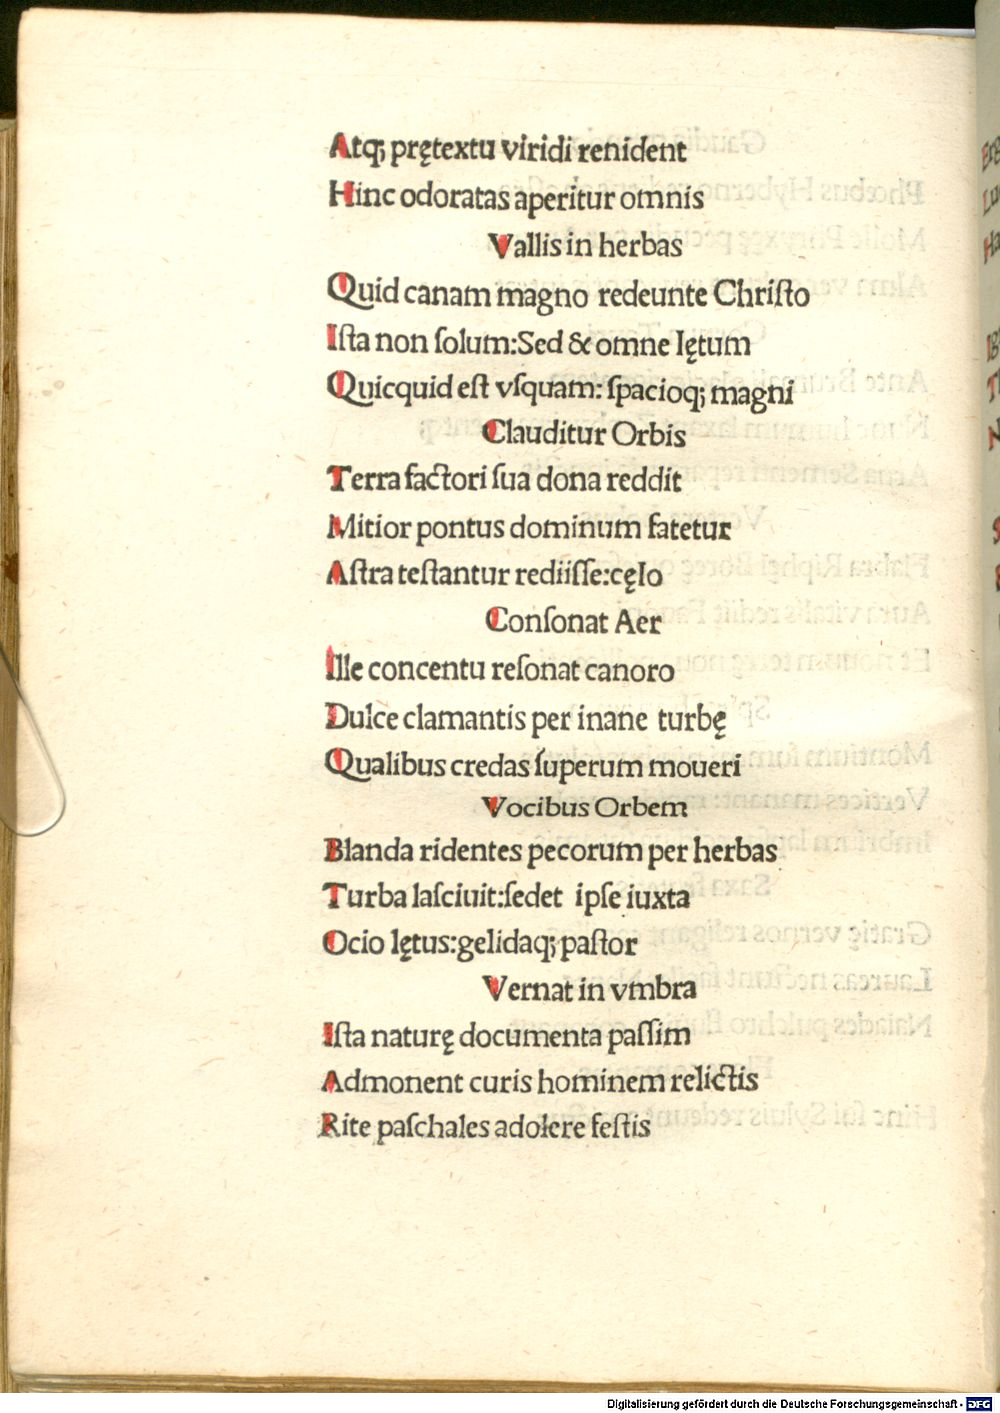 Atq; prętextu viridi renident
Hinc odoratas aperitur omnis
Vallis in herbas
Quid canam magno redeunte Chriſto
Iſta non ſolum:Sed & omne lętum
Quicquid eſt vſquam: ſpacioq; magni
Clauditur Orbis
Terra factori ſua dona reddit
Mitior pontus dominum fatetur
Aſtra teſtantur rediiſſe:cęlo
Conſonat Aer
Ille concentu reſonat canoro
Dulce clamantis per inane turbę
Qualibus credas ſuperum moueri
Vocibus Orbem
Blanda ridentes pecorum per herbas
Turba laſciuit:ſedet ipſe iuxta
Ocio lętus:gelidaq; paſtor
Vernat in vmbra
Iſta naturę documenta paſſim
Admonent curis hominem relictis
Rite paſchales adolere feſtis
Digitalisierung gefördert durch die Deutsche Forschungsgemeinschaft - DFG